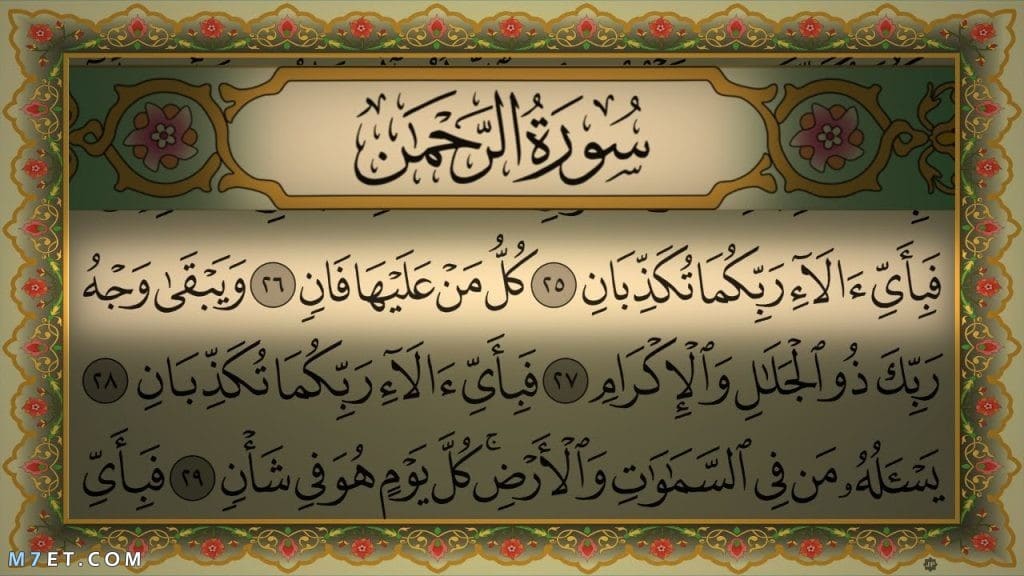 سُورَةُ الرَّحْمَٰن
فَبِأَيِّ ءَالَآءِ رَبِّكُمَا تُكَذِّبَانِ ٢٥ كُلُّ مَنْ عَلَيْهَا فَانٍ ٢٦ وَيَبْقَىٰ وَجْهُ
رَبِّكَ ذُو ٱلْجَلَٰلِ وَٱلْإِكْرَامِ ٢٧ فَبِأَيِّ ءَالَآءِ رَبِّكُمَا تُكَذِّبَانِ ٢٨
يَسْـَٔلُهُۥ مَن فِي ٱلسَّمَٰوَٰتِ وَٱلْأَرْضِۚ كُلَّ يَوْمٍ هُوَ فِي شَأْنٍ ٢٩ فَبِأَيِّ
M7ET.COM